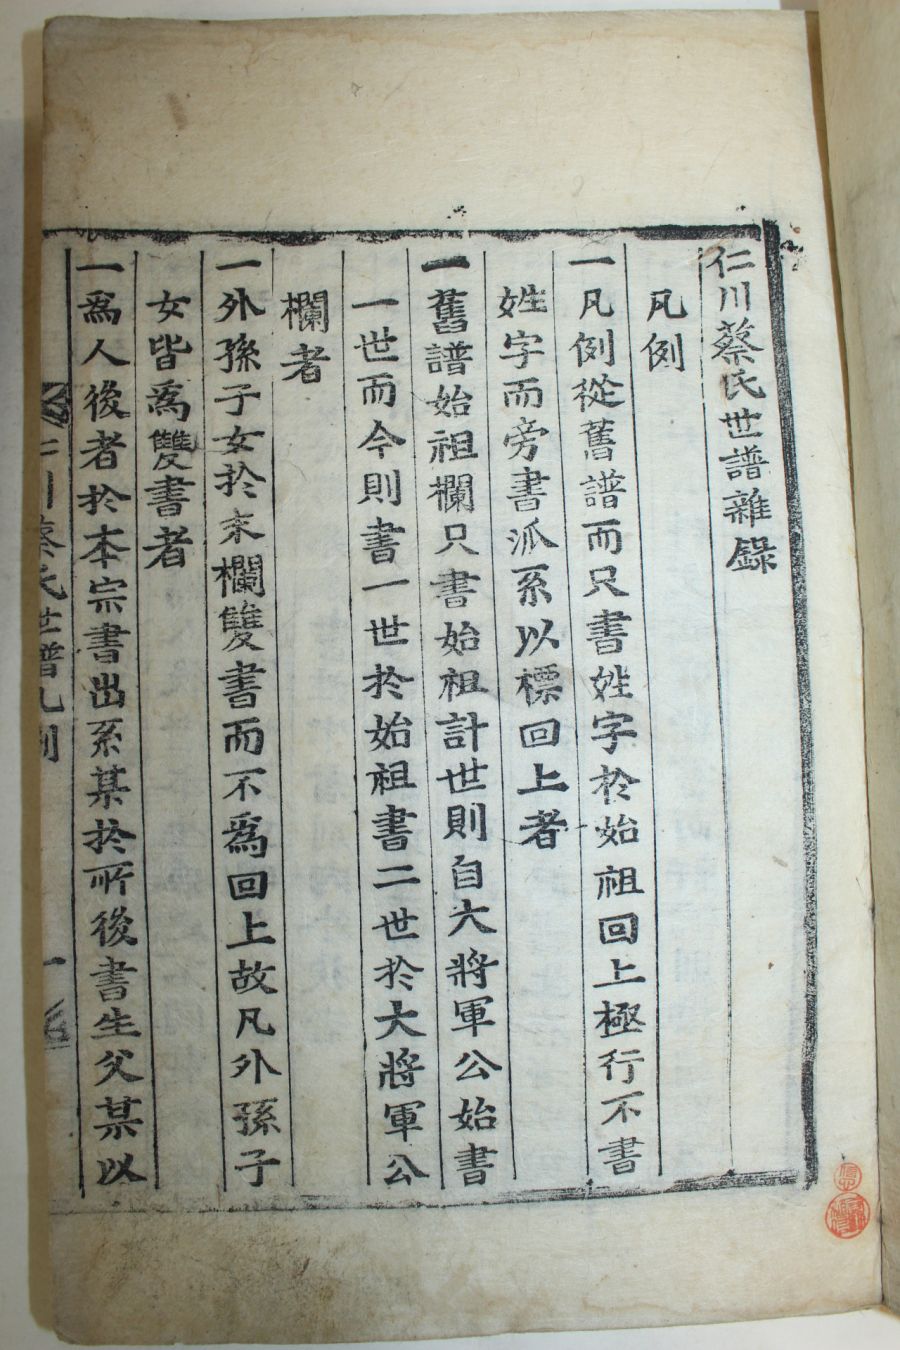 仁川蔡氏世譜雜錄
凡例
一凡例從舊譜而只書姓字於始祖回上極行不書
姓字而旁書派系以標回上者
一舊譜始祖欄只書始祖計世則自大將軍公始書
一世而今則書一世於始祖書二世於大將軍公
欄者
一外孫子女於末欄雙書而不爲回上故凡外孫子
女皆爲雙書者
一爲人後者於本宗書出系某於所後書生父某以
仁川蔡氏世譜凡例 一